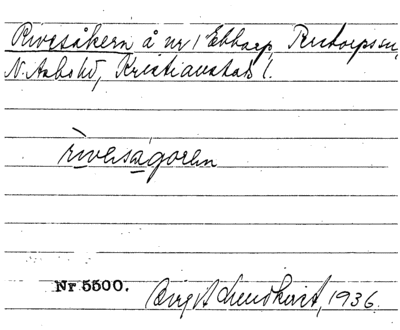 Rivesåkern å nr 1 Ebbarp, Perstorps sn,
N. Åsbo hd, Kristianstads l.
rivesågoren
Nr 5500. Birgit Lundkvist, 1936.